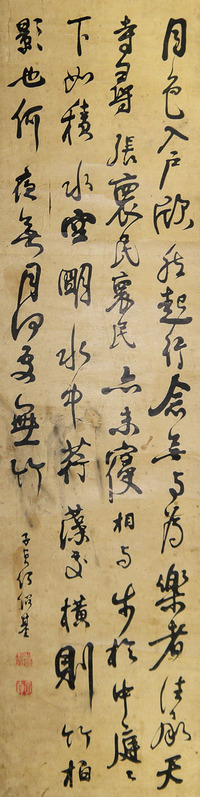 月色入戶欣然起行念無与為樂者往承天
寺尋張褱民褱民亦未寢相与步於中庭〻
下如積水空明水中荇藻交橫則竹柏
影也何夜無月何處無竹
子貞何紹基